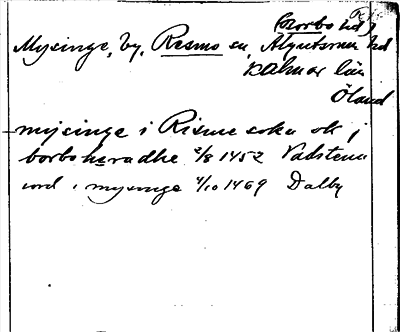 Borbo hd
Mysinge, by, Resmo sn, Algutsrum hd
Kalmar län
Öland
mysinge i Risme sokn ok i
borbo heradhe 2/8 1452 Vadstena
ord i mysinge 4/10 1469 Dalby